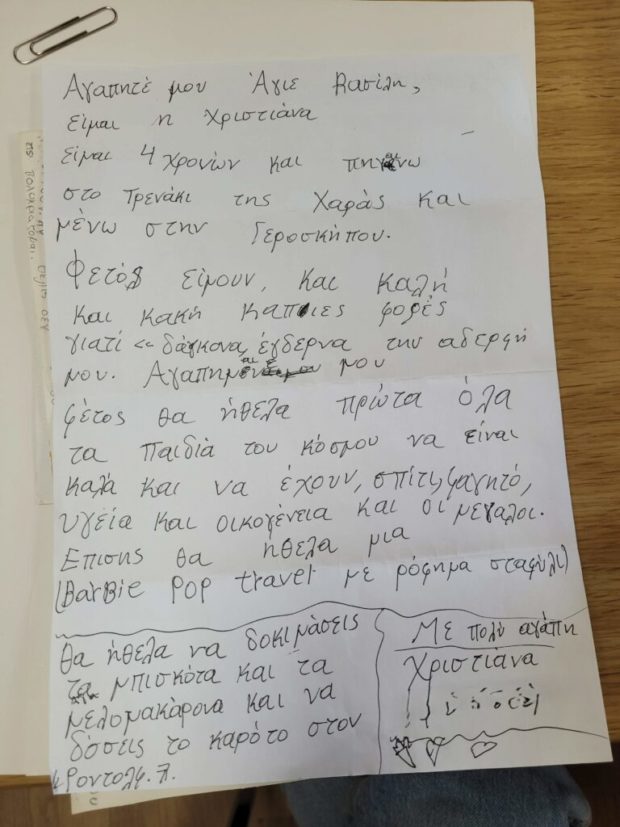 Αγαπητέ μου Άγιε Βασίλη,
είμαι η Χριστιάνα
είμαι 4 χρονών και πηγαίνω
στο Τρενάκι της Χαράς και
μένω στην Γεροσκήπου.
Φετός είμουν, και καλή
και κακή καποιες φορές
γιατί << δάγκονα, έγδερνα την αδερφή
μου. Αγαπημένε μου
φέτος θα ήθελα πρώτα όλα
τα παιδιά του κόσμου να είναι
καλά και να έχουν, σπίτι, φαγητό,
υγεία και οικογένεια και οι μεγαλοι.
Επισης θα ήθελα μια
(BarBie POP travel με ρόφημα σταφύλι)
θα ήθελα να δοκιμάσεις
τα μπισκότα και τα
μελομακάρονα και να
δόσεις το καρότο στον
Ροντολφ.
Με πολύ αγάπη
Χριστιάνα